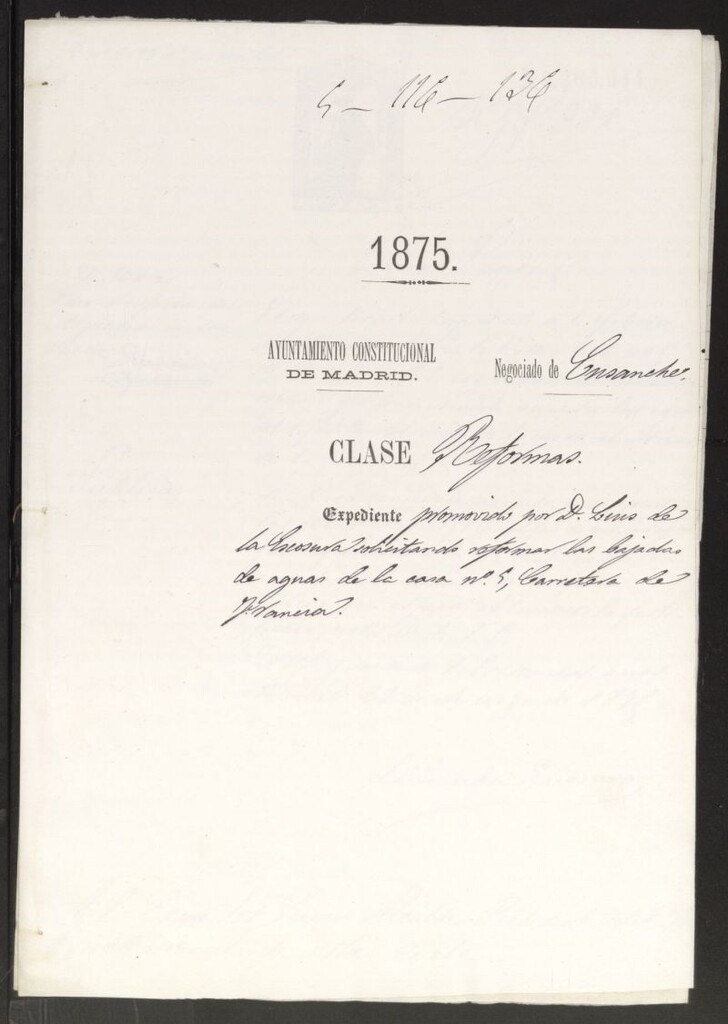 5 - 116 - 136
1875.
AYUNTAMIENTO CONSTITUCIONAL
DE MADRID.
Negociado de Ensanche.
CLASE Reformas.
Expediente promovido por D. Luis de
la Escosura solicitando reformar las bajadas
de aguas de la casa nº. 5, Carretera de
Francia.